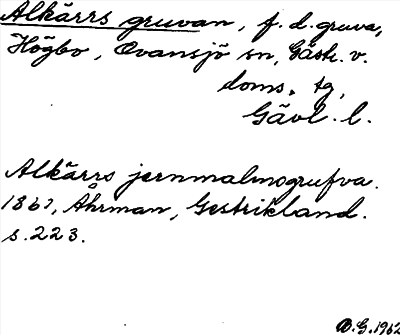 Alkärrs gruvan, f.d. gruva,
Högbo, Ovansjö sn, Gästr. v.
doms. tg,
Gävl. l.
Alkärrs jernmalmsgrufva.
1861, Åhrman, Gestrikland.
s. 223.
O.G. 1962